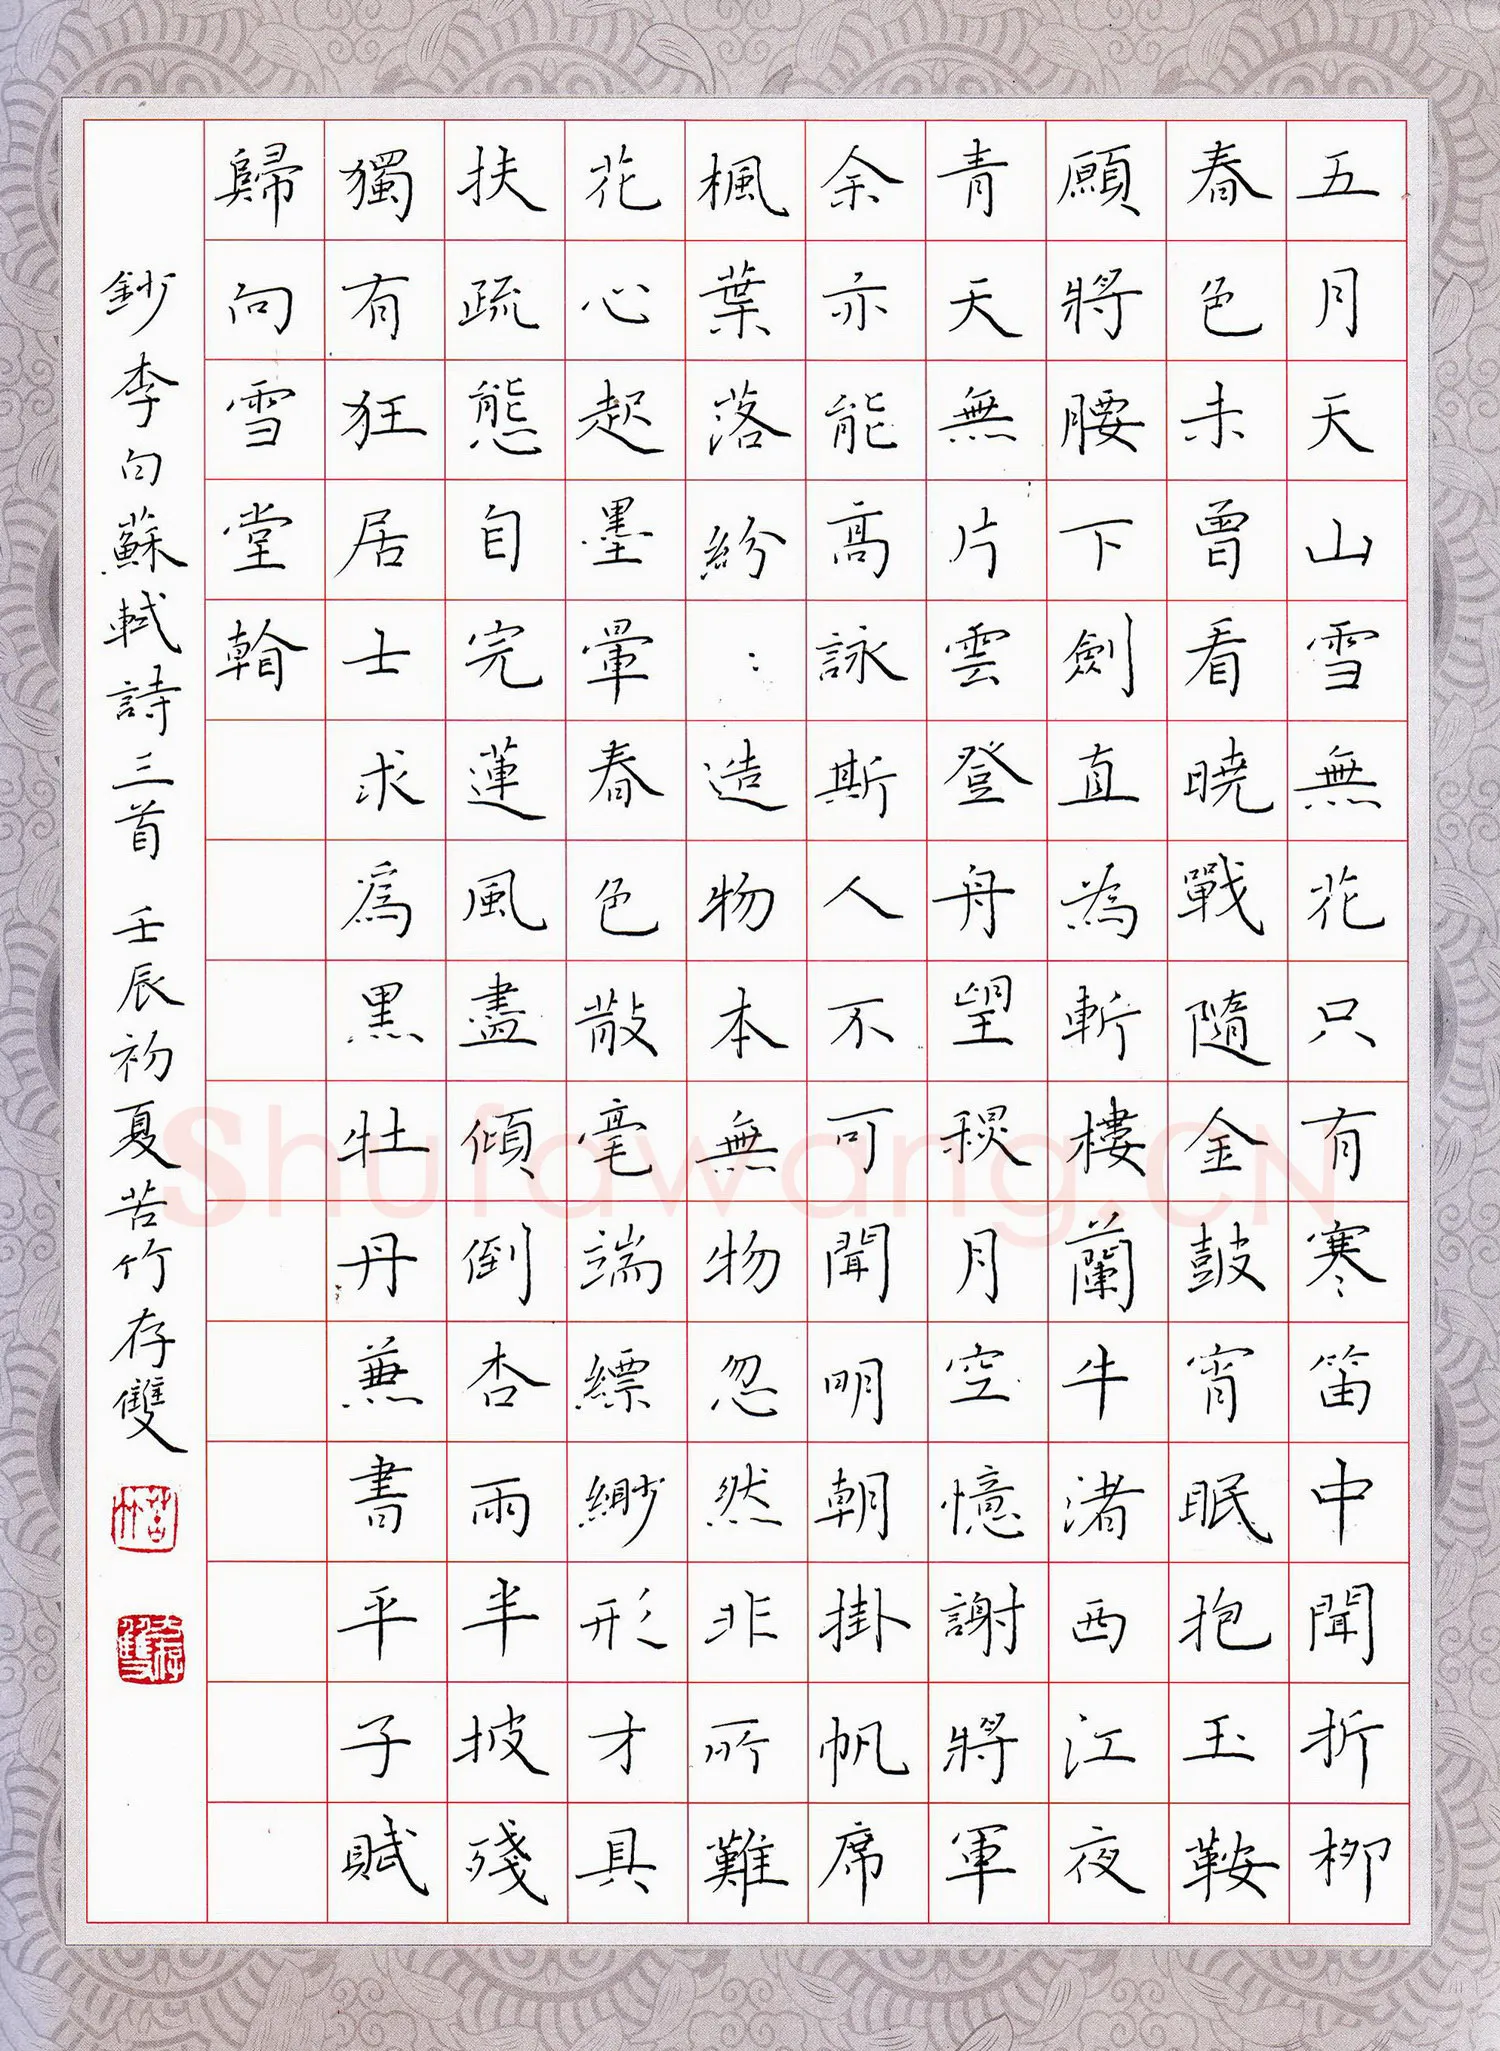 五月天山雪無花只有寒笛中聞折柳
春色未曾看曉戰隨金鼓宵眠抱玉鞍
願將腰下劍直為斬樓蘭牛渚西江夜
青天無片雲登舟望秋月空憶謝將軍
余亦能高詠斯人不可聞明朝掛帆席
楓葉落紛:造物本無物忽然非所難
花心起墨暈春色散毫端縹緲形才具
扶疏態自完蓮風盡傾倒杏雨半披殘
獨有狂居士求爲黑牡丹兼書平子賦
歸向雪堂韓
鈔李白蘇軾詩三首 壬辰初夏苦竹存雙
苦竹
存雙
Shufawang.CN